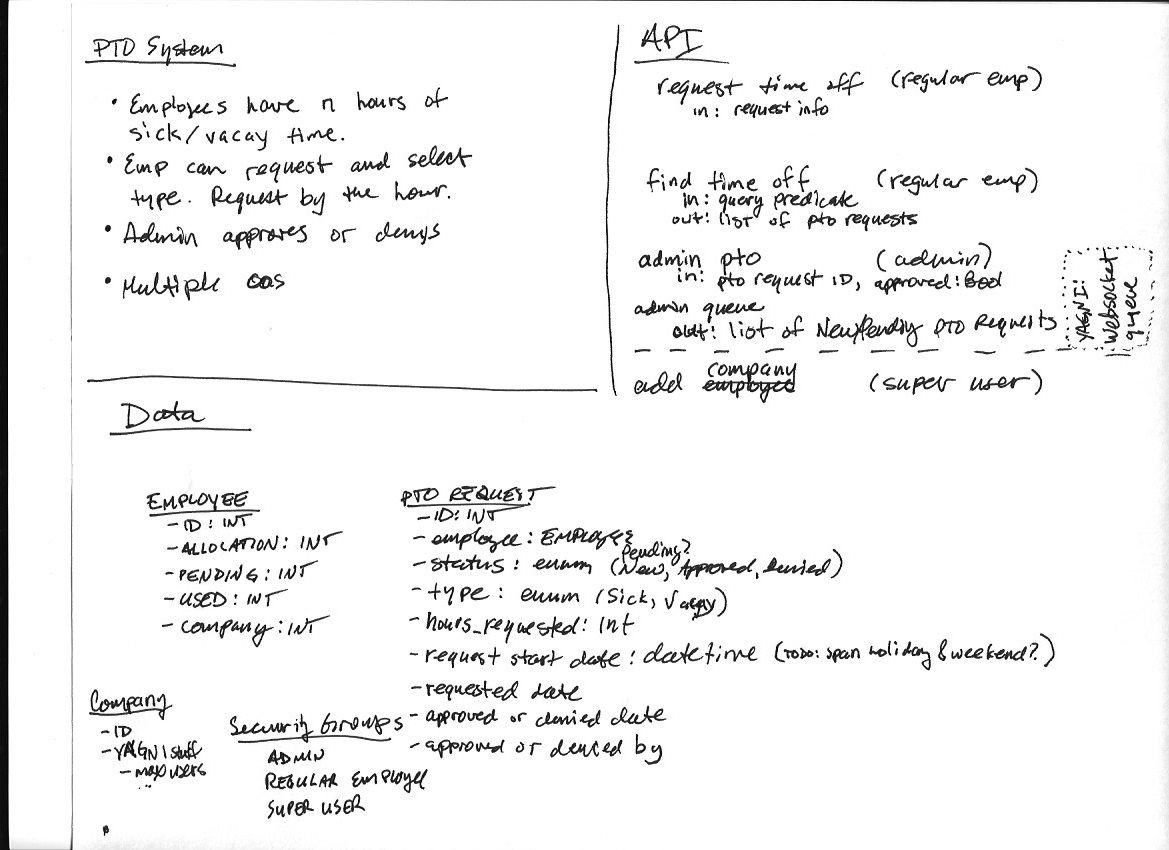 PTO System
• Employees have n hours of
sick/vacay time.
• Emp can request and select
type. Request by the hour.
• Admin approves or denys
• Multiple
API
request time off (regular emp)
in: request info
find time off (regular emp)
in: query predicate
out: list of pto requests
admin pto (admin)
in: pto request ID, approved: Bool
admin queue
out: list of New/Pending PTO Requests
YAGNI:
Websocket
queue
company
add employee (super user)
Data
EMPLOYEE
- ID: INT
- ALLOCATION: INT
- PENDING: INT
- USED: INT
- company: INT
PTO REQUEST
- ID: INT
- employee: EMPLOYEE
Pending?
- status: enum (New, Approved, Denied)
- type: enum (Sick, Vacay)
- hours_requested: Int
- request start date: datetime (TODO: span holiday & weekend?)
- requested date
- approved or denied date
- approved or denied by
Company
- ID
- YAGNI stuff
- max users
..
Security Groups
ADMIN
REGULAR EMPLOYEE
SUPER USER